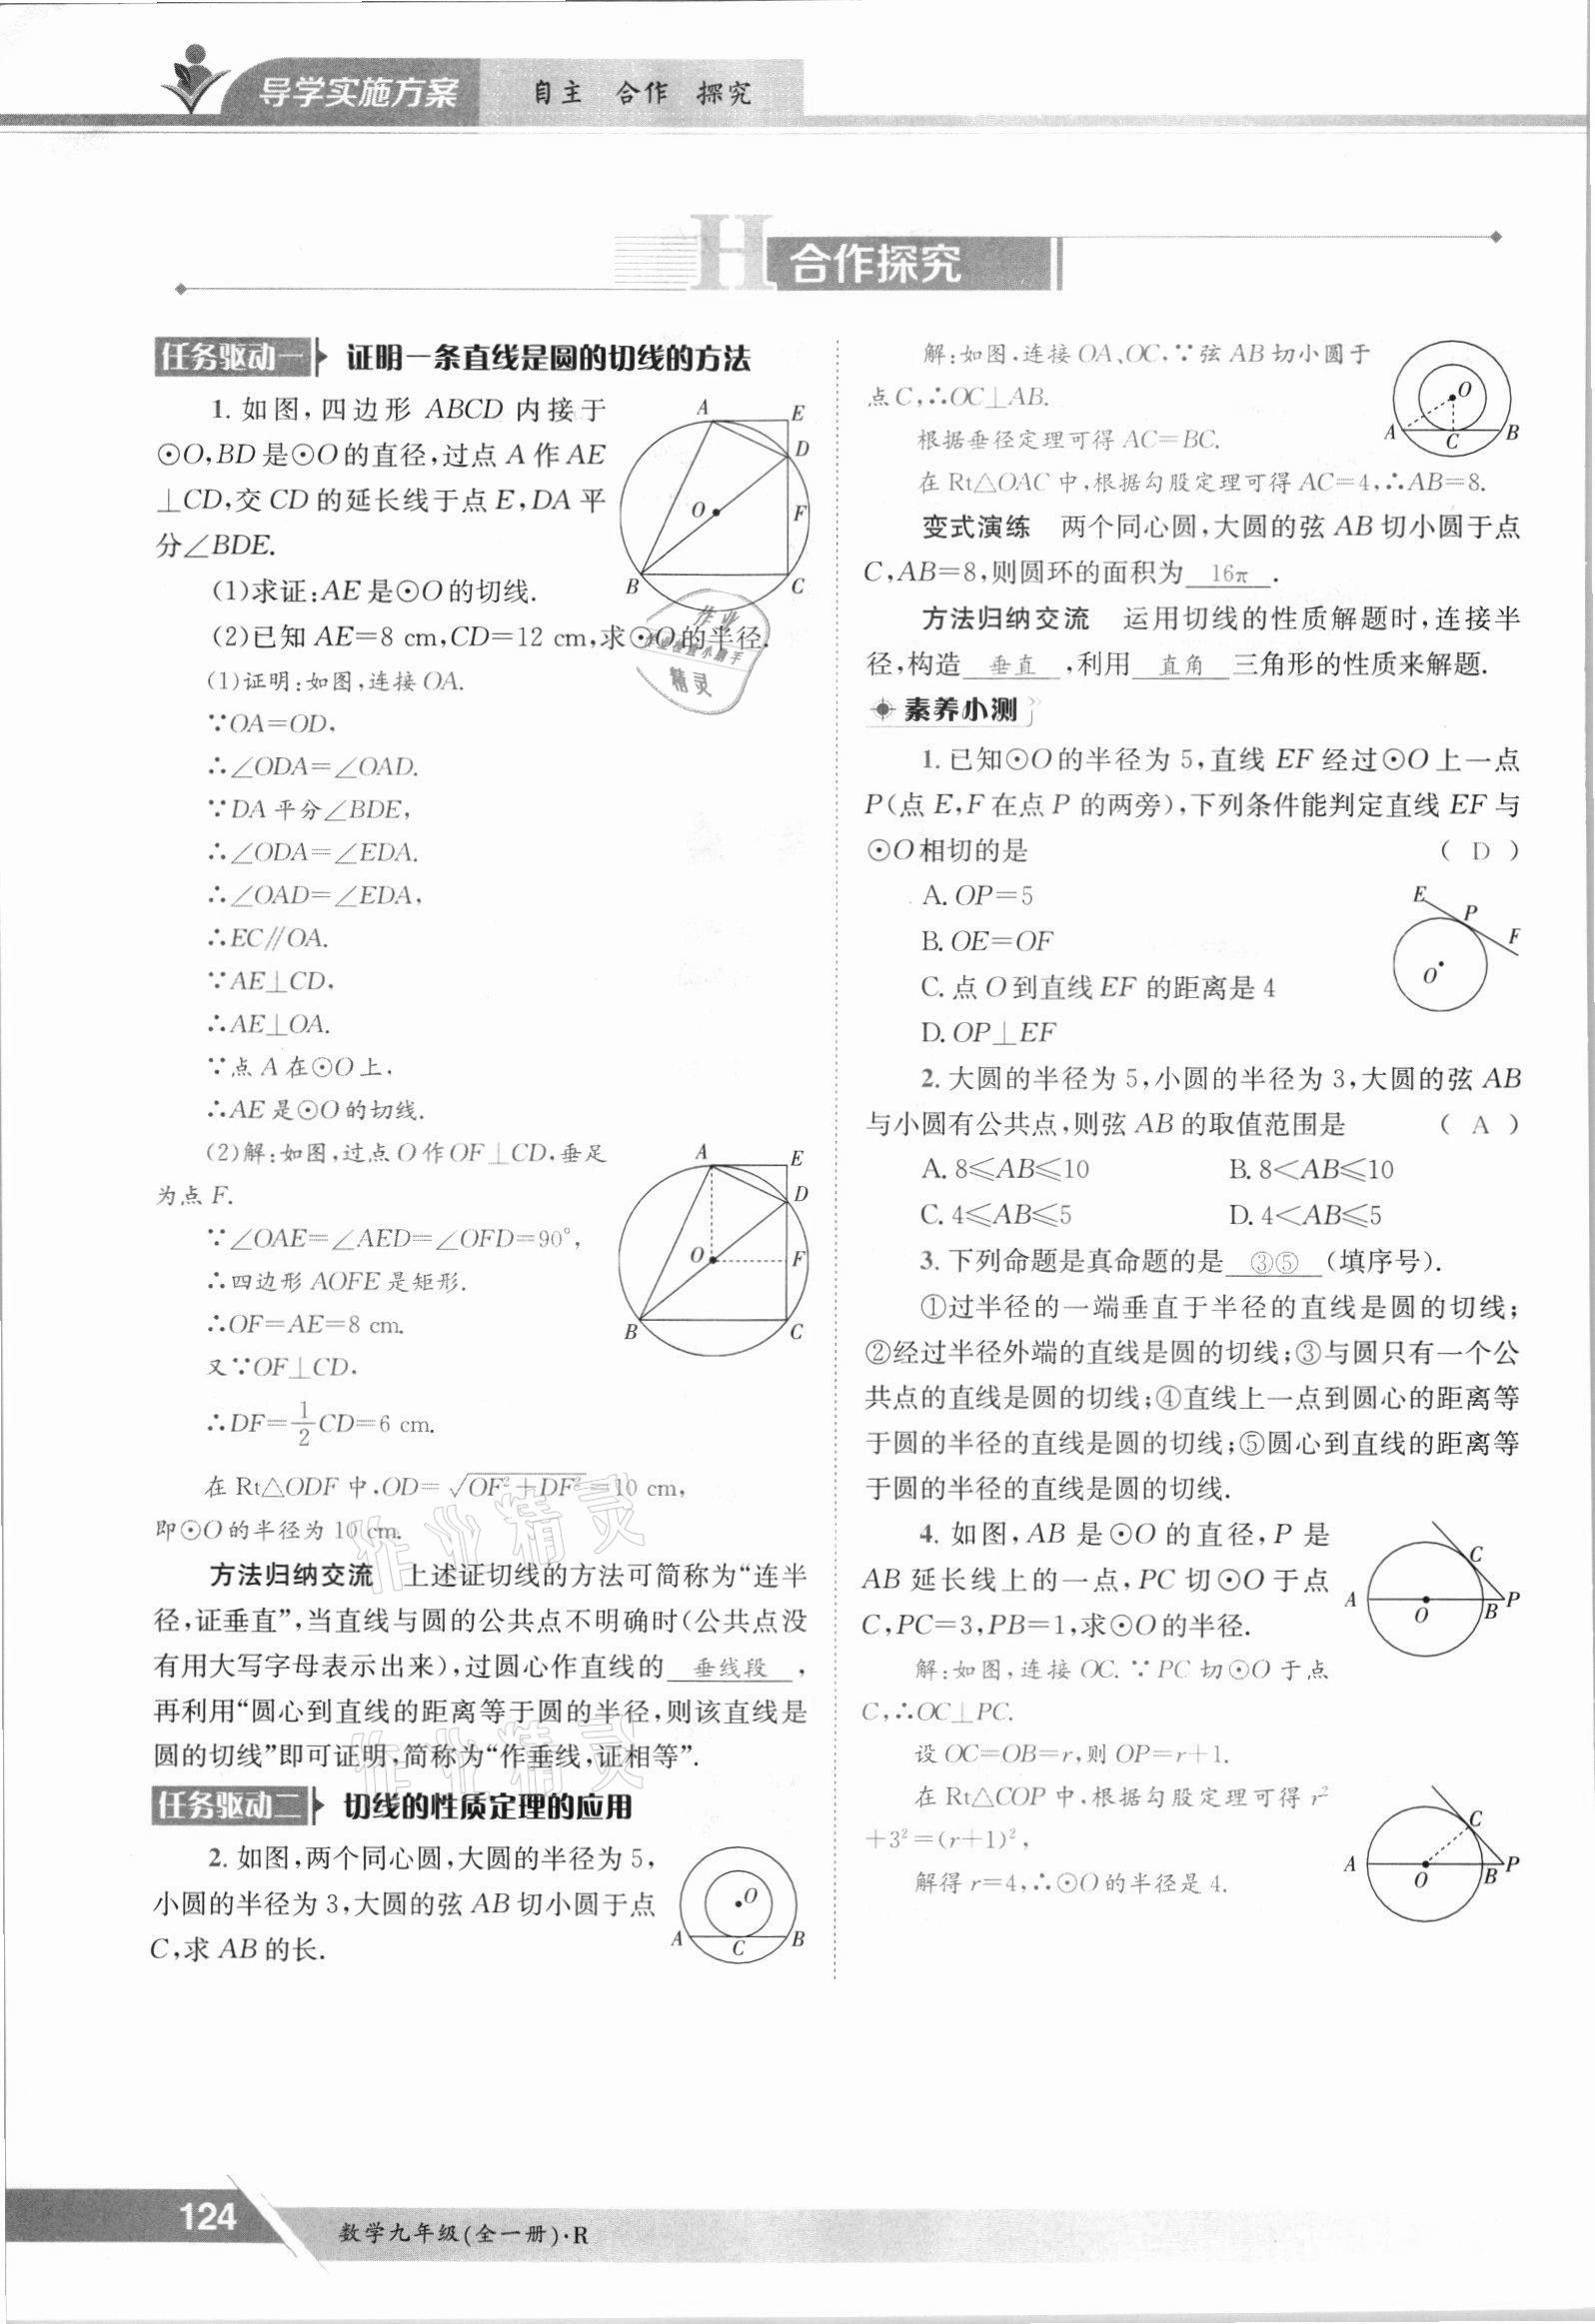 导学实施方案
自主 合作 探究
H
合作探究
任务驱动一 证明一条直线是圆的切线的方法
1. 如图,四边形 ABCD 内接于
⊙O,BD 是⊙O 的直径,过点 A 作 AE
⊥CD,交 CD 的延长线于点 E,DA 平
分∠BDE.
(1)求证:AE 是⊙O 的切线.
(2)已知 AE=8 cm,CD=12 cm,求⊙O 的半径.
A
E
D
O
F
B
C
(1)证明:如图,连接 OA.
∵OA=OD,
∴∠ODA=∠OAD.
∵DA 平分∠BDE,
∴∠ODA=∠EDA.
∴∠OAD=∠EDA,
∴EC∥OA.
∵AE⊥CD,
∴AE⊥OA.
∵点 A 在⊙O 上,
∴AE 是⊙O 的切线.
(2)解:如图,过点 O 作 OF⊥CD,垂足
为点 F.
∵∠OAE=∠AED=∠OFD=90°,
∴四边形 AOFE 是矩形.
∴OF=AE=8 cm.
又∵OF⊥CD,
∴DF=1/2CD=6 cm.
A
E
D
O
F
B
C
在 Rt△ODF 中,OD=√(OF²+DF²)=10 cm,
即⊙O 的半径为 10 cm.
方法归纳交流 上述证切线的方法可简称为“连半
径,证垂直”,当直线与圆的公共点不明确时(公共点没
有用大写字母表示出来),过圆心作直线的 垂线段 ,
再利用“圆心到直线的距离等于圆的半径,则该直线是
圆的切线”即可证明,简称为“作垂线,证相等”.
任务驱动二 切线的性质定理的应用
2. 如图,两个同心圆,大圆的半径为 5,
小圆的半径为 3,大圆的弦 AB 切小圆于点
C,求 AB 的长.
O
A
C
B
解:如图,连接 OA、OC,∵弦 AB 切小圆于
点 C,∴OC⊥AB.
根据垂径定理可得 AC=BC.
在 Rt△OAC 中,根据勾股定理可得 AC=4,∴AB=8.
O
A
C
B
变式演练 两个同心圆,大圆的弦 AB 切小圆于点
C,AB=8,则圆环的面积为 16π .
方法归纳交流 运用切线的性质解题时,连接半
径,构造 垂直 ,利用 直角 三角形的性质来解题.
素养小测
1. 已知⊙O 的半径为 5,直线 EF 经过⊙O 上一点
P(点 E,F 在点 P 的两旁),下列条件能判定直线 EF 与
⊙O 相切的是 ( D )
A. OP=5
B. OE=OF
C. 点 O 到直线 EF 的距离是 4
D. OP⊥EF
E
P
F
O
2. 大圆的半径为 5,小圆的半径为 3,大圆的弦 AB
与小圆有公共点,则弦 AB 的取值范围是 ( A )
A. 8≤AB≤10 B. 8<AB≤10
C. 4≤AB≤5 D. 4<AB≤5
3. 下列命题是真命题的是 ③⑤ (填序号).
①过半径的一端垂直于半径的直线是圆的切线;
②经过半径外端的直线是圆的切线;③与圆只有一个公
共点的直线是圆的切线;④直线上一点到圆心的距离等
于圆的半径的直线是圆的切线;⑤圆心到直线的距离等
于圆的半径的直线是圆的切线.
4. 如图,AB 是⊙O 的直径,P 是
AB 延长线上的一点,PC 切⊙O 于点
C,PC=3,PB=1,求⊙O 的半径.
C
A
O
B
P
解:如图,连接 OC.∵PC 切⊙O 于点
C,∴OC⊥PC.
设 OC=OB=r,则 OP=r+1.
在 Rt△COP 中,根据勾股定理可得 r²
+3²=(r+1)²,
解得 r=4,∴⊙O 的半径是 4.
C
A
O
B
P
作业精灵
作业精灵
作业
精灵
124
数学九年级(全一册)·R